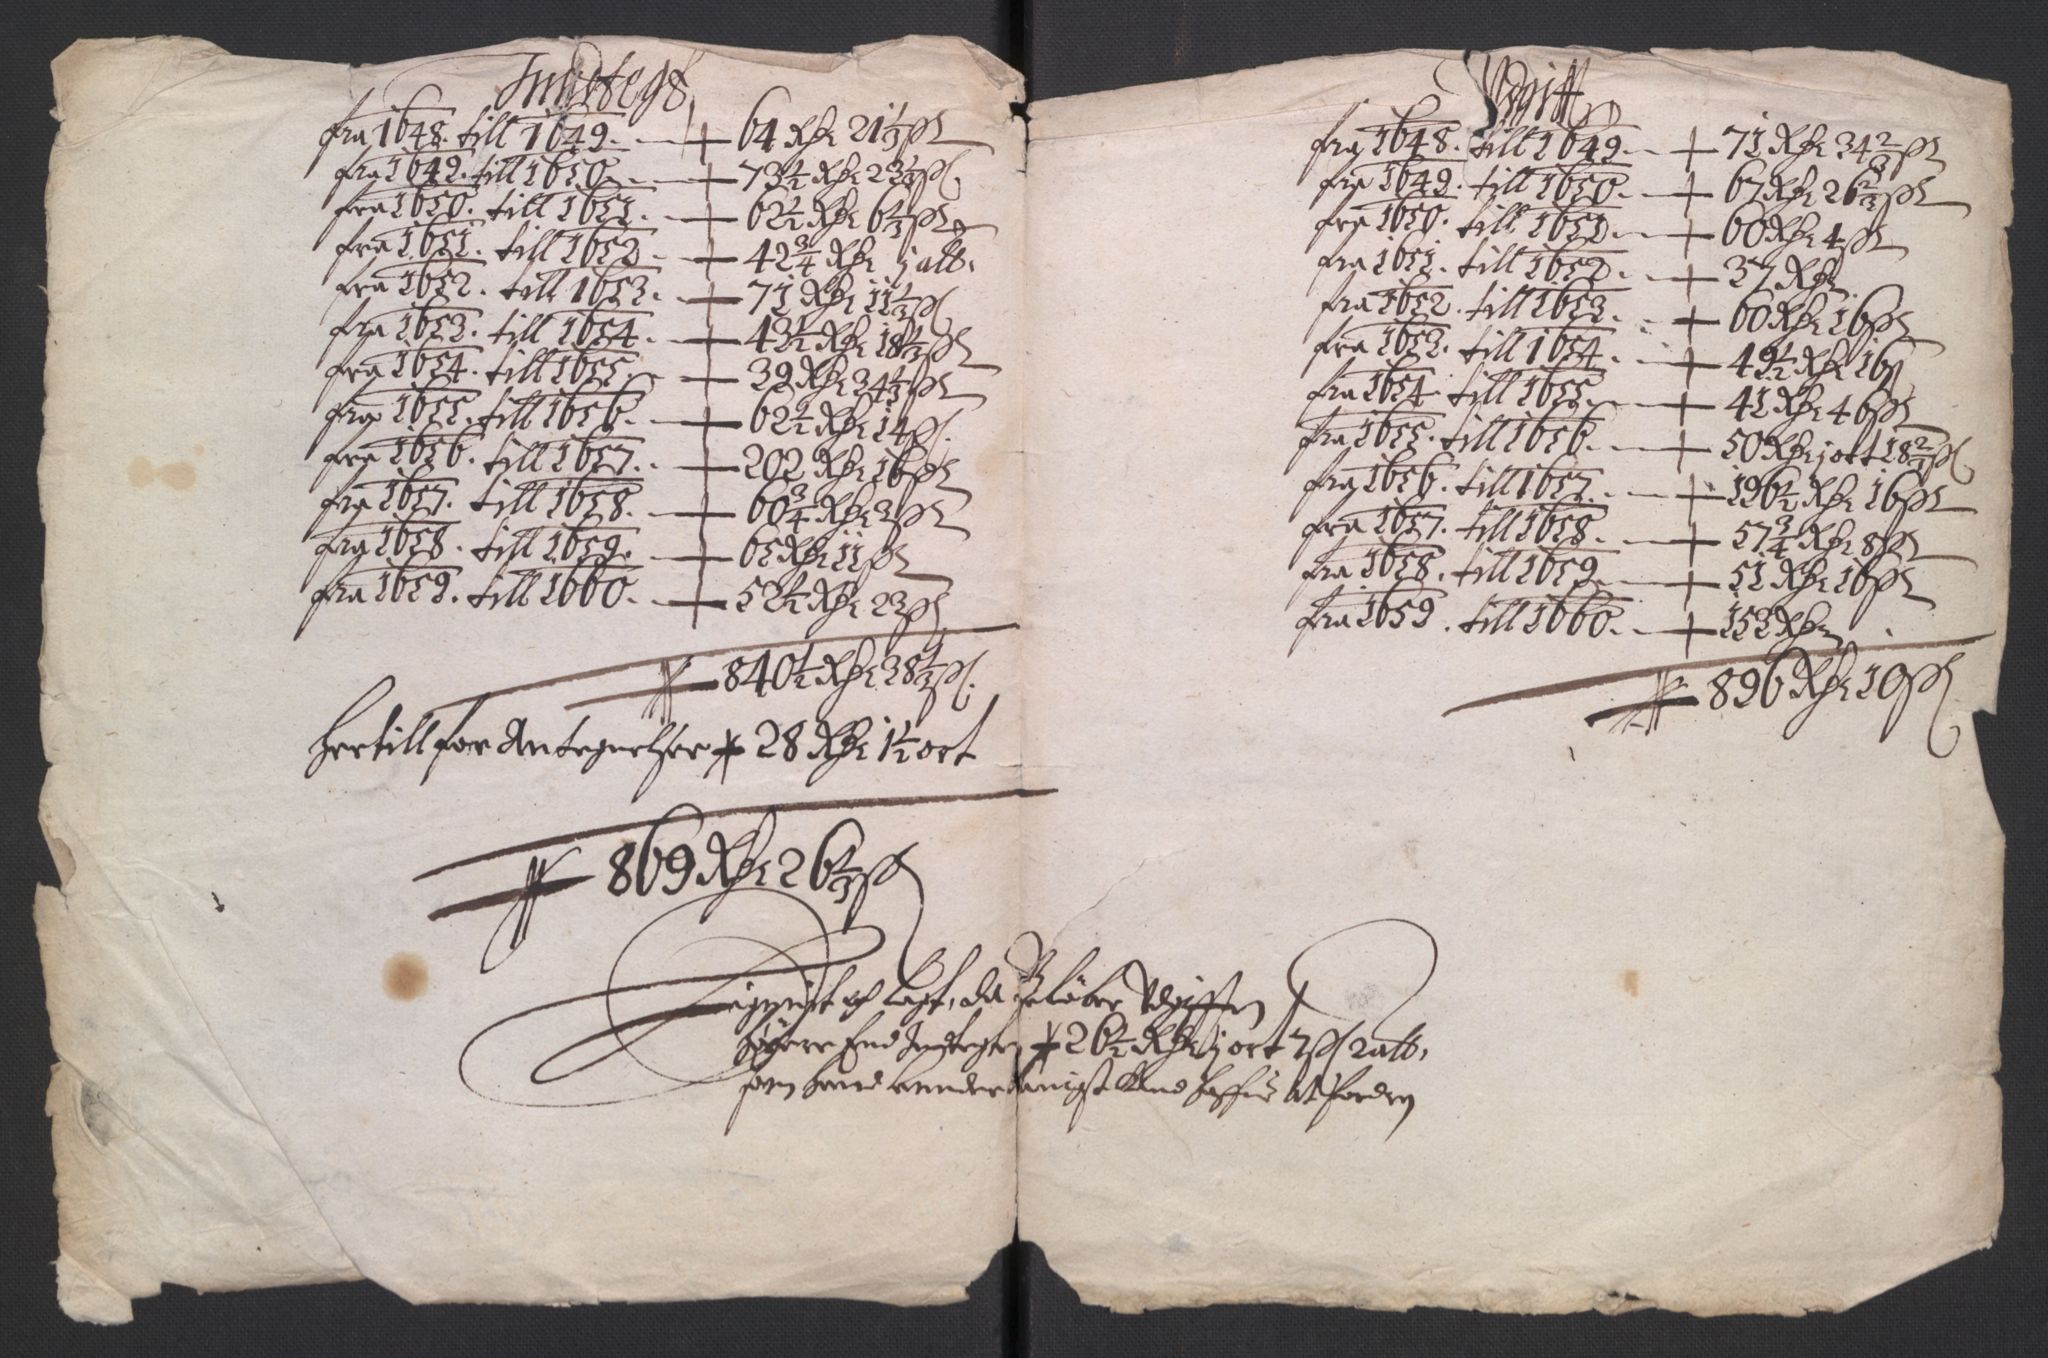 Indtegt
fra 1648. till 1649. — 64 Rdr 21 1/3 ß
fra 1649. till 1650. — 73 1/2 Rdr 23 1/3 ß
fra 1650. till 1651. — 62 1/2 Rdr 6 1/3 ß
fra 1651. till 1652. — 42 3/4 Rdr j alb.
fra 1652. till 1653. — 71 Rdr 11 1/3 ß
fra 1653. till 1654. — 43 1/2 Rdr 18 1/3 ß
fra 1654. till 1655. — 39 Rdr 34 1/3 ß
fra 1655. till 1656. — 62 1/2 Rdr 14 ß
fra 1656. till 1657. — 202 Rdr 16 ß
fra 1657. till 1658. — 60 3/4 Rdr 3 ß
fra 1658. till 1659. — 65 Rdr 11 ß
fra 1659. till 1660. — 52 1/2 Rdr 23 ß
840 1/2 Rdr 38 1/3 ß
hertill for Antegnelser 28 Rdr 1 1/2 ort
869 Rdr 26 1/3 ß
Udgift
fra 1648. till 1649. — 71 Rdr 34 2/3 ß
fra 1649. till 1650. — 67 Rdr 26 2/3 ß
fra 1650. till 1651. — 60 Rdr 4 ß
fra 1651. till 1652. — 37 Rdr
fra 1652. till 1653. — 60 Rdr 16 ß
fra 1653. till 1654. — 49 1/2 Rdr 16 ß
fra 1654. till 1655. — 41 Rdr 46 ß
fra 1655. till 1656. — 50 Rdr j ort 18 2/3 ß
fra 1656. till 1657. — 196 1/2 Rdr 16 ß
fra 1657. till 1658. — 57 3/4 Rdr 8 ß
fra 1658. till 1659. — 51 Rdr 16 ß
fra 1659. till 1660. — 153 Rdr
896 Rdr 10 ß
Lignit och lagt, da beløber Udgifften
høyere End Indtegten 26 1/2 Rdr j ort 7 ß 2 alb.
som hand underdanigst haffuer at fordre